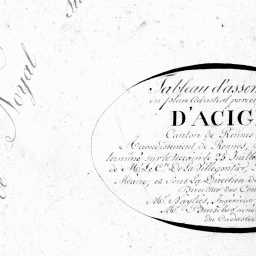 Royal
Tableau d'assem
du plan cadastral parcel
D'ACIG
Canton de Rennes
Arrondissement de Rennes,
terminé sur le terrain le 25 Juillet
de Mr. le Cte. de la Villegontier,
Maire, et sous la Direction de
Directeur des Con
Mr. Ingénieur
du Cadastre